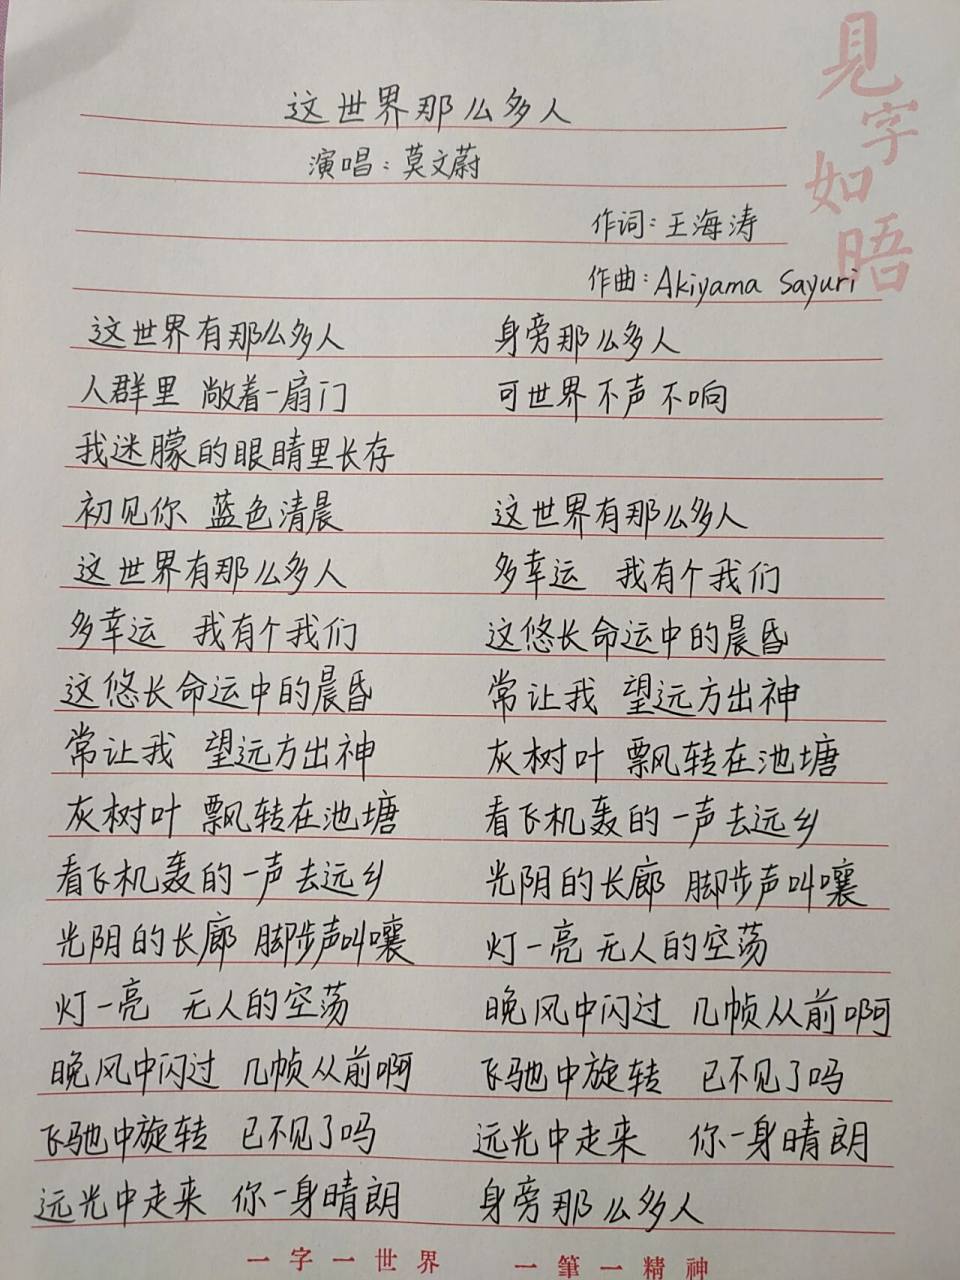 見字如晤
这世界那么多人
演唱：莫文蔚
作词：王海涛
作曲：Akiyama Sayuri
这世界有那么多人
人群里 敞着一扇门
我迷朦的眼睛里长存
初见你 蓝色清晨
这世界有那么多人
多幸运 我有个我们
这悠长命运中的晨昏
常让我 望远方出神
灰树叶 飘转在池塘
看飞机轰的一声去远乡
光阴的长廊 脚步声叫嚷
灯一亮 无人的空荡
晚风中闪过 几帧从前啊
飞驰中旋转 已不见了吗
远光中走来 你一身晴朗
身旁那么多人
可世界不声不响
这世界有那么多人
多幸运 我有个我们
这悠长命运中的晨昏
常让我 望远方出神
灰树叶 飘转在池塘
看飞机轰的一声去远乡
光阴的长廊 脚步声叫嚷
灯一亮 无人的空荡
晚风中闪过 几帧从前啊
飞驰中旋转 已不见了吗
远光中走来 你一身晴朗
身旁那么多人
一字一世界 一筆一精神